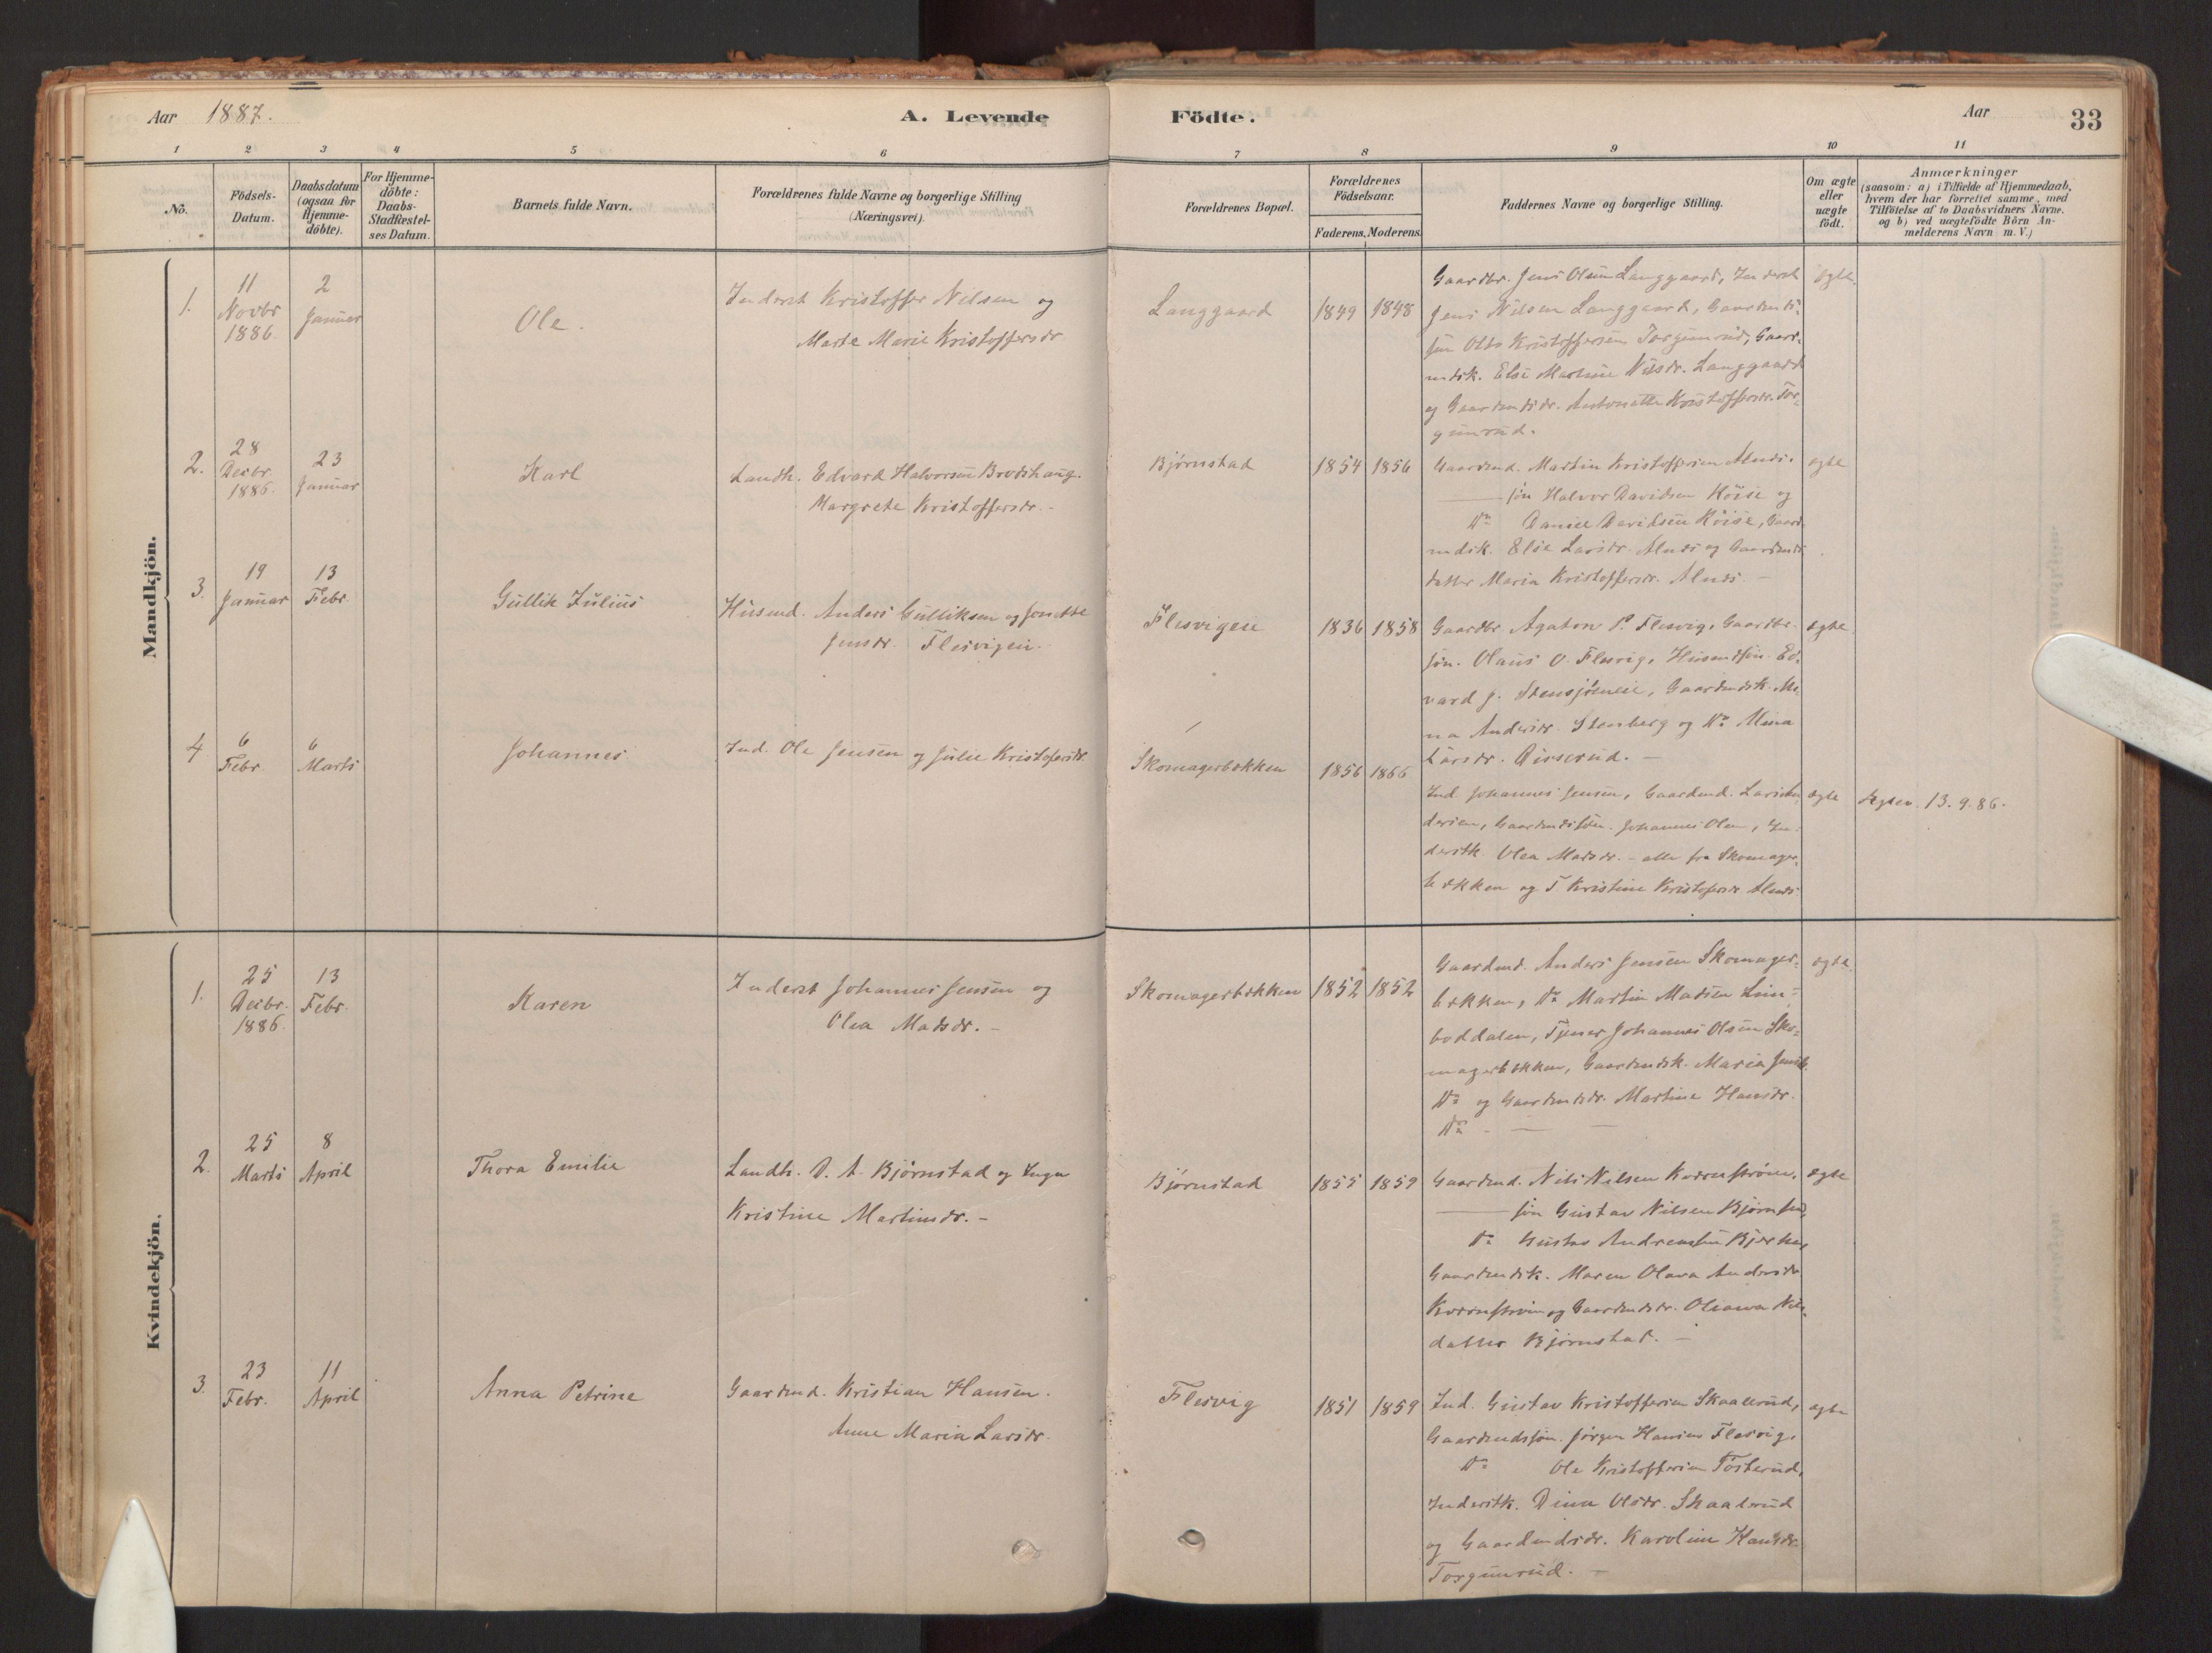 Aar 1887.
A. Levende Födte.
Aar
33
1 2 3 4 5 6 7 8 9 10 11
No.
Födsels-
Datum.
Daabsdatum
(ogsaa for
Hjemme-
döbte).
For Hjemme-
döbte:
Daabs-
Stadfæstel-
ses Datum.
Barnets fulde Navn.
Forældrenes fulde Navne og borgerlige Stilling
(Næringsvei).
Forældrenes Bopæl.
Forældrenes
Födselsaar.
Faderens. Moderens.
Faddernes Navne og borgerlige Stilling.
Om ægte
eller
uægte
födt.
Anmærkninger
(saasom: a) i Tilfælde af Hjemmedaab,
hvem der har forrettet samme, med
Tilföielse af to Daabsvidners Navne.
og b) ved uægtefödte Börn An-
melderens Navn m. V.)
Mandkjön.
1.
11
Novbr
1886.
2
Januar
Ole.
Inderst Kristoffer Nilsen og
Marte Marie Kristoffersdr.
Langgaard
1849 1848
Gaardbr. Jens Olsen Langgaard, Inderst
Jens Nilsen Langgaard, Gaardmds-
søn Otto Kristoffersen Torgunrud, Gaard-
mdsk. Else Martine Nilsdr. Langgaard
og Gaardmdsdr. Antonette Kristoffersdr. Tor-
gunrud.
ægte.
2.
28
Decbr.
1886.
23
Januar
Karl
Landh. Edvard Halvorsen Brodshaug.
Margrete Kristoffersdr. -
Bjørnstad
1854 1856
Gaardmd. Martin Kristoffersen Alnds.
søn Halvor Davidsen Höise og
Do Daniel Davidsen Höise, Gaard-
mdsk. Else Larsdr. Alnds og Gaardmds
datter Maria Kristoffersdr. Alnds. -
ægte
3.
19
Januar
13
Febr.
Gullik Julius
Husmd. Anders Gulliksen og Jonette
Jensdr. Flesvigen.
Flesvigen
1836 1858
Gaardbr. Agaton P. Flesvig, Gaardbr.
søn. Olaus O. Flesvig, Husmdsøn Ed-
vard J. Stensjöneie, Gaardmdsk. Mi-
na Andersdr. Stenberg og Do Mina
Larsdr. -
ægte
4
6
Febr.
6
Marts
Johannes
Ind. Ole Jensen og Julie Kristofersdr.
Skomagerbækken
1856 1866
Ind. Johannes Jensen, Gaardmd. Lars
dersen, Gaardmdssøn. Johannes Olsen, In-
derstk. Olea Madsdr. - alle fra Skomager-
bækken og T Kristine Kristofersdr. Alnds
ægte
Ægtev. 13.9.86.
Kvindekjön.
1.
25
Decbr.
1886.
13
Febr.
Karen
Inderst Johannes Jensen og
Olea Madsdr. -
Skomagerbækken
1852 1852
Gaardmd. Anders Jensen Skomager-
bækken, Do Martin Madsen Lim-
boddalen, Tjener Johannes Olsen Sko-
magerbækken, Gaardmdsk. Maria Jensdr.
Do og Gaardmdsdr. Martine Hansdr.
Do -
ægte.
2.
25
Marts
8
April
Thora Emilie
Landh. O. A. Bjørnstad og Inga
Kristine Martinsdr. -
Bjørnstad
1855 1859
Gaardmd. Nils Nilsen Kværnstrøm,
søn Gustav Nilsen Bjørnstad,
Do Gustav Andreassen Bjerke,
Gaardmdsk. Maren Olava Andersdr.
Kværnstrøm og Gaardmdsdr. Oliava Nils-
datter Bjørnstad. -
ægte
3.
23
Febr.
11
April
Anna Petrine
Gaardmd. Kristian Hansen.
Anne Maria Larsdr.
Flesvig
1851 1859
Ind. Gustav Kristoffersen Skaalerud,
Gaardmdssøn. Jørgen Hansen Flesvig.
Do Ole Kristoffersen Tosterud,
Inderstk. Dina Olsdr. Skaalerud
og Gaardmdsdr. Karoline Hansdr.
Torgunrud. -
ægte